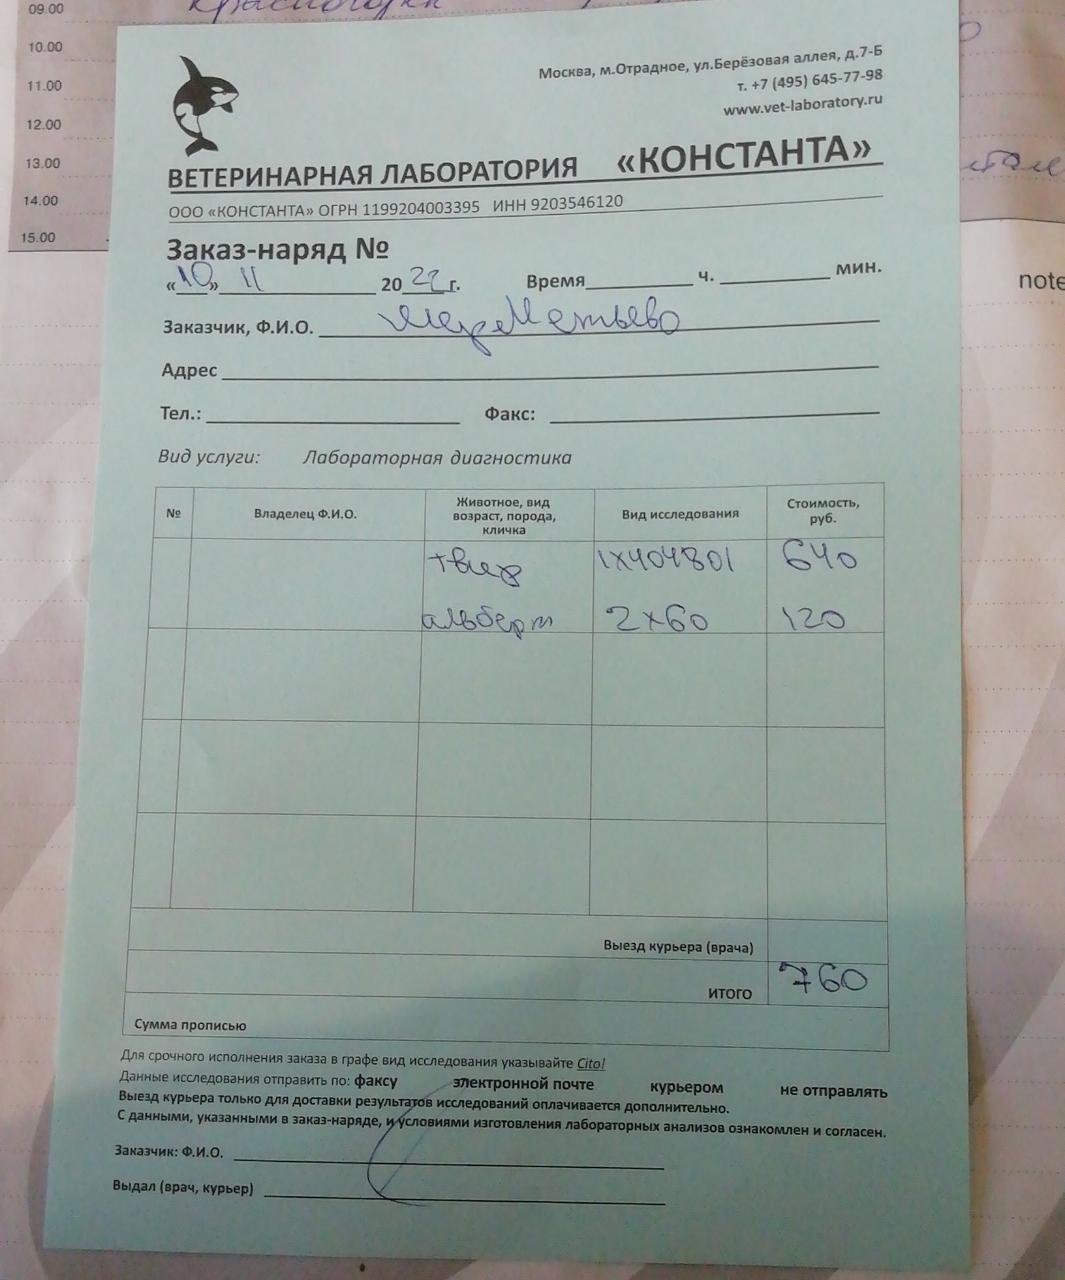 09.00
10.00
11.00
12.00
13.00
14.00
15.00
note
Москва, м.Отрадное, ул.Берёзовая аллея, д.7-Б
т. +7 (495) 645-77-98
www.vet-laboratory.ru
ВЕТЕРИНАРНАЯ ЛАБОРАТОРИЯ «КОНСТАНТА»
ООО «КОНСТАНТА» ОГРН 1199204003395 ИНН 9203546120
Заказ-наряд №
«10» 11 2022 г. Время ч. мин.
Заказчик, Ф.И.О. Шереметьево
Адрес
Тел.: Факс:
Вид услуги: Лабораторная диагностика
№ Владелец Ф.И.О. Животное, вид возраст, порода, кличка Вид исследования Стоимость, руб.
1х404801 640
альберт 2х60 120
Выезд курьера (врача)
ИТОГО 760
Сумма прописью
Для срочного исполнения заказа в графе вид исследования указывайте Cito!
Данные исследования отправить по: факсу электронной почте курьером не отправлять
Выезд курьера только для доставки результатов исследований оплачивается дополнительно.
С данными, указанными в заказ-наряде, и условиями изготовления лабораторных анализов ознакомлен и согласен.
Заказчик: Ф.И.О.
Выдал (врач, курьер)